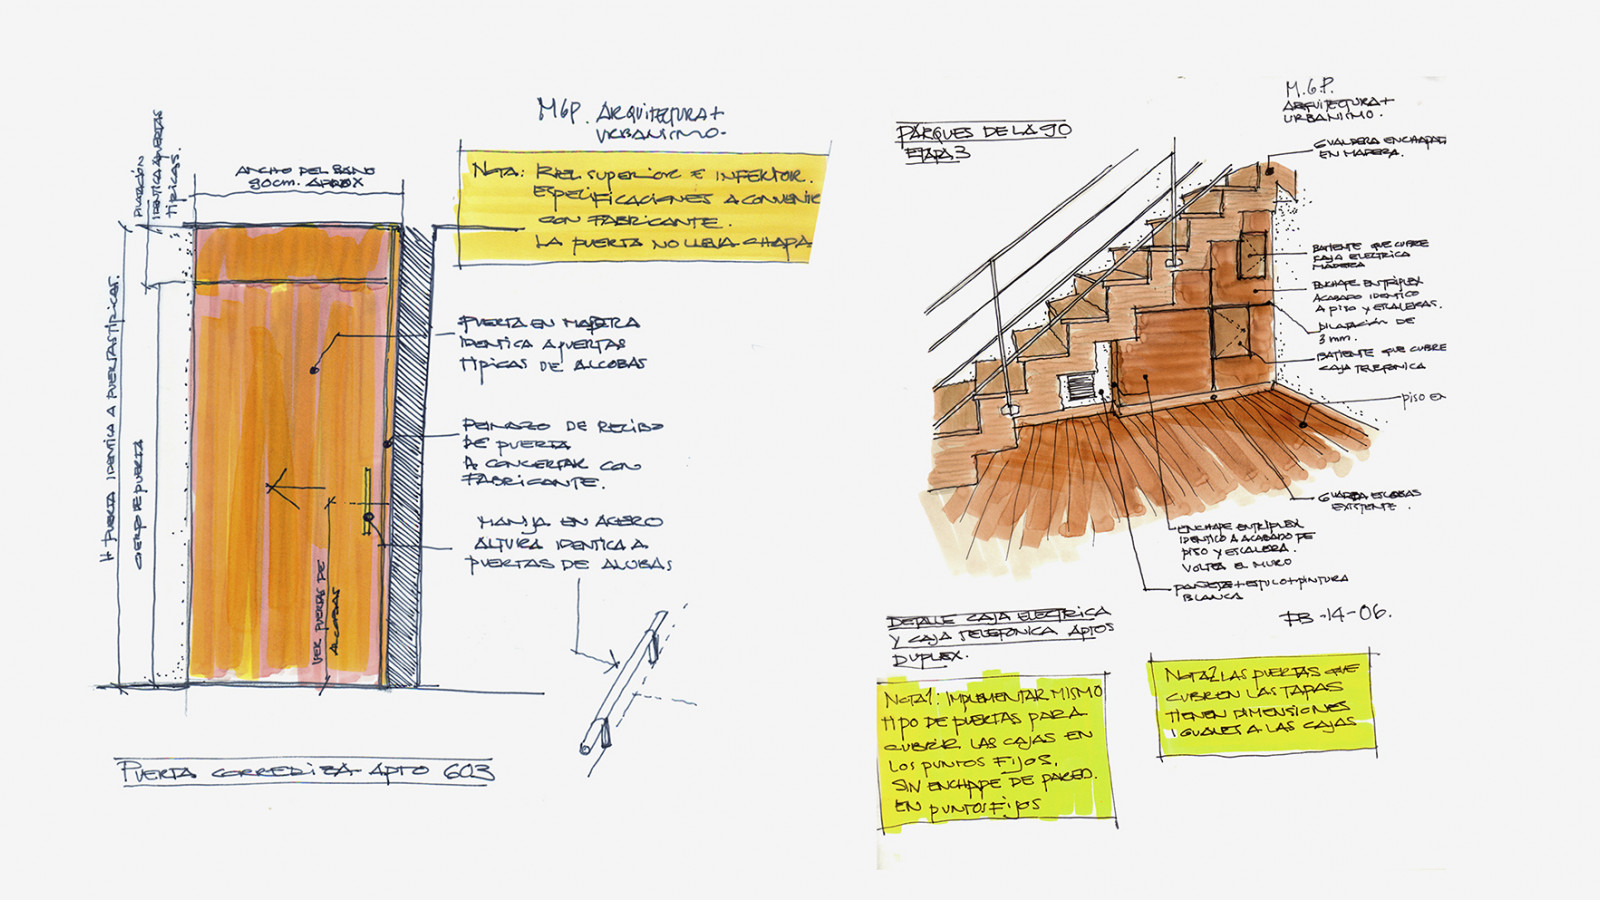 M6P. ARQUITECTURA +
URBANISMO.
NOTA: RIEL SUPERIOR E INFERIOR.
ESPECIFICACIONES A CONVENIR
CON FABRICANTE.
LA PUERTA NO LLEVA CHAPA
ANCHO DEL BAÑO
90cm. APROX
DILATACIÓN
IDENTICA A PUERTAS
TIPICAS.
H PUERTA IDENTICA A PUERTAS TIPICAS.
CUERPO DE PUERTA
PUERTA EN MADERA
IDENTICA A PUERTAS
TIPICAS DE ALCOBAS
PEINAZO DE RECIBO
DE PUERTA
A CONCERTAR CON
FABRICANTE.
MANIJA EN ACERO
ALTURA IDENTICA A
PUERTAS DE ALCOBAS
VER PUERTAS DE
ALCOBAS
PUERTA CORREDIZA APTO 603
M.G.P.
ARQUITECTURA +
URBANISMO.
PARQUES DE LA 90
ETAPA 3
GUALDERA ENCHAPADA
EN MADERA.
BATIENTE QUE CUBRE
CAJA ELECTRICA
MADERA
ENCHAPE EN TRIPLEX
ACABADO IDENTICO
A PISO Y ESCALERAS.
DILATACIÓN DE
3 mm.
BATIENTE QUE CUBRE
CAJA TELEFONICA
PISO EN
GUARDA ESCOBAS
EXISTENTE.
ENCHAPE EN TRIPLEX
IDENTICO A ACABADO DE
PISO Y ESCALERA.
VOLTEA EL MURO
PAÑETE + ESTUCO + PINTURA
BLANCA.
-14-06.
DETALLE CAJA ELECTRICA
Y CAJA TELEFONICA APTOS
DUPLEX.
NOTA 1: IMPLEMENTAR MISMO
TIPO DE PUERTAS PARA
CUBRIR LAS CAJAS EN
LOS PUNTOS FIJOS.
SIN ENCHAPE DE PARED.
EN PUNTOS FIJOS
NOTA 2 LAS PUERTAS QUE
CUBREN LAS TAPAS
TIENEN DIMENSIONES
IGUALES A LAS CAJAS